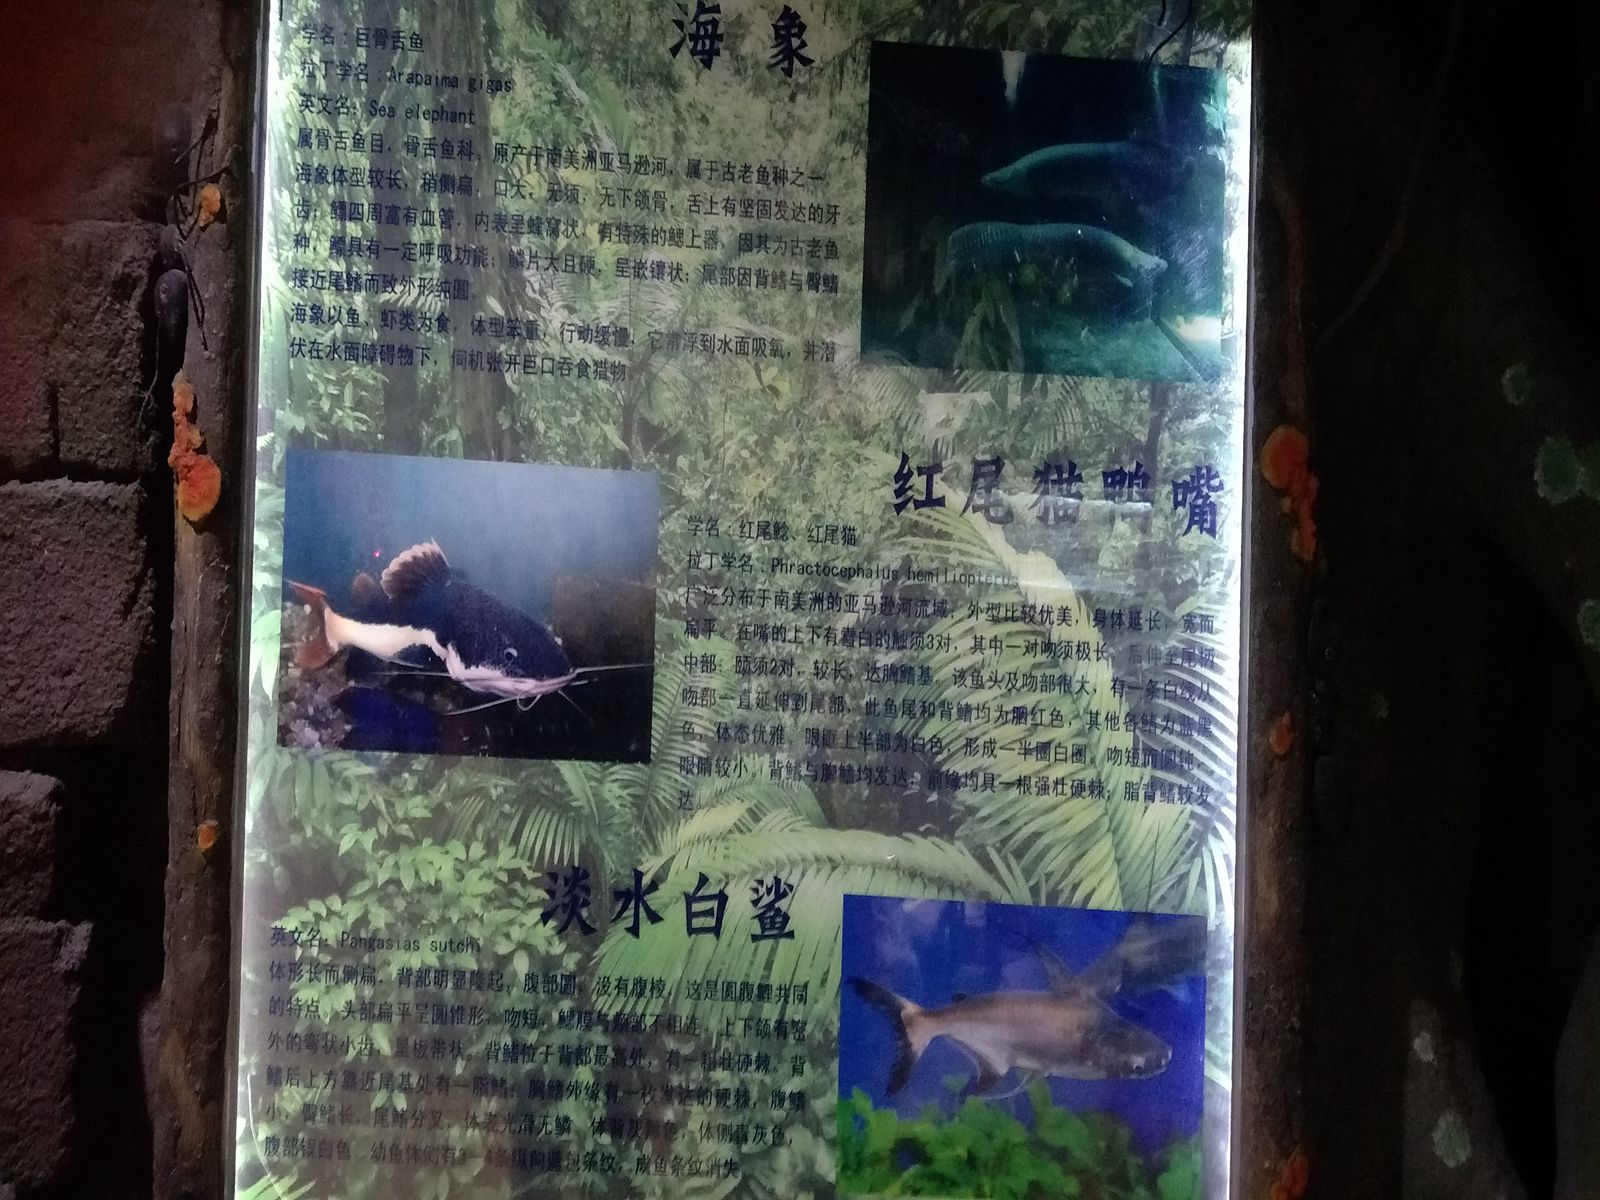 海象
学名：巨骨舌鱼
拉丁学名：Arapaima gigas
英文名：Sea elephant
属骨舌鱼目，骨舌鱼科。原产于南美洲亚马逊河，属于古老鱼种之一。
海象体型较长，稍侧扁，口大，无须，无下颌骨，舌上有坚固发达的牙
齿；鳔四周富有血管，内表呈蜂窝状，有特殊的鳃上器，因其为古老鱼
种，鳔具有一定呼吸功能；鳞片大且硬，呈嵌镶状；尾部因背鳍与臀鳍
接近尾鳍而致外形纯圆
海象以鱼、虾类为食，体型笨重，行动缓慢，它常浮到水面吸氧，并潜
伏在水面障碍物下，伺机张开巨口吞食猎物。
红尾猫鸭嘴
学名：红尾鲶、红尾猫
拉丁学名：Phractocephalus hemiliopterus
广泛分布于南美洲的亚马逊河流域，外型比较优美，身体延长，宽而
扁平。在嘴的上下有雪白的触须3对，其中一对吻须极长，后伸至尾柄
中部；颐须2对，较长，达胸鳍基。该鱼头及吻部很大，有一条白线从
吻部一直延伸到尾部，此鱼尾和背鳍均为胭红色，其他各鳍为蓝黑
色，体态优雅。眼眶上半部为白色，形成一半圈白圈。吻短而圆钝，
眼睛较小。背鳍与胸鳍均发达；前缘均具一根强壮硬棘；脂背鳍较发
达。
淡水白鲨
英文名：Pangasias sutchi
体形长而侧扁，背部明显隆起，腹部圆，没有腹棱，这是圆腹鲤共同
的特点。头部扁平呈圆锥形，吻短，鳃膜与颊部不相连。上下颌有密
外的弯状小齿，呈板带状。背鳍位于背部最高处，有一粗壮硬棘。背
鳍后上方靠近尾基处有一脂鳍；胸鳍外缘有一枚发达的硬棘，腹鳍
小，臀鳍长，尾鳍分叉，体表光滑无鳞，体背灰黑色，体侧青灰色，
腹部银白色，幼鱼体侧有3-4条纵向蓝色条纹，成鱼条纹消失。